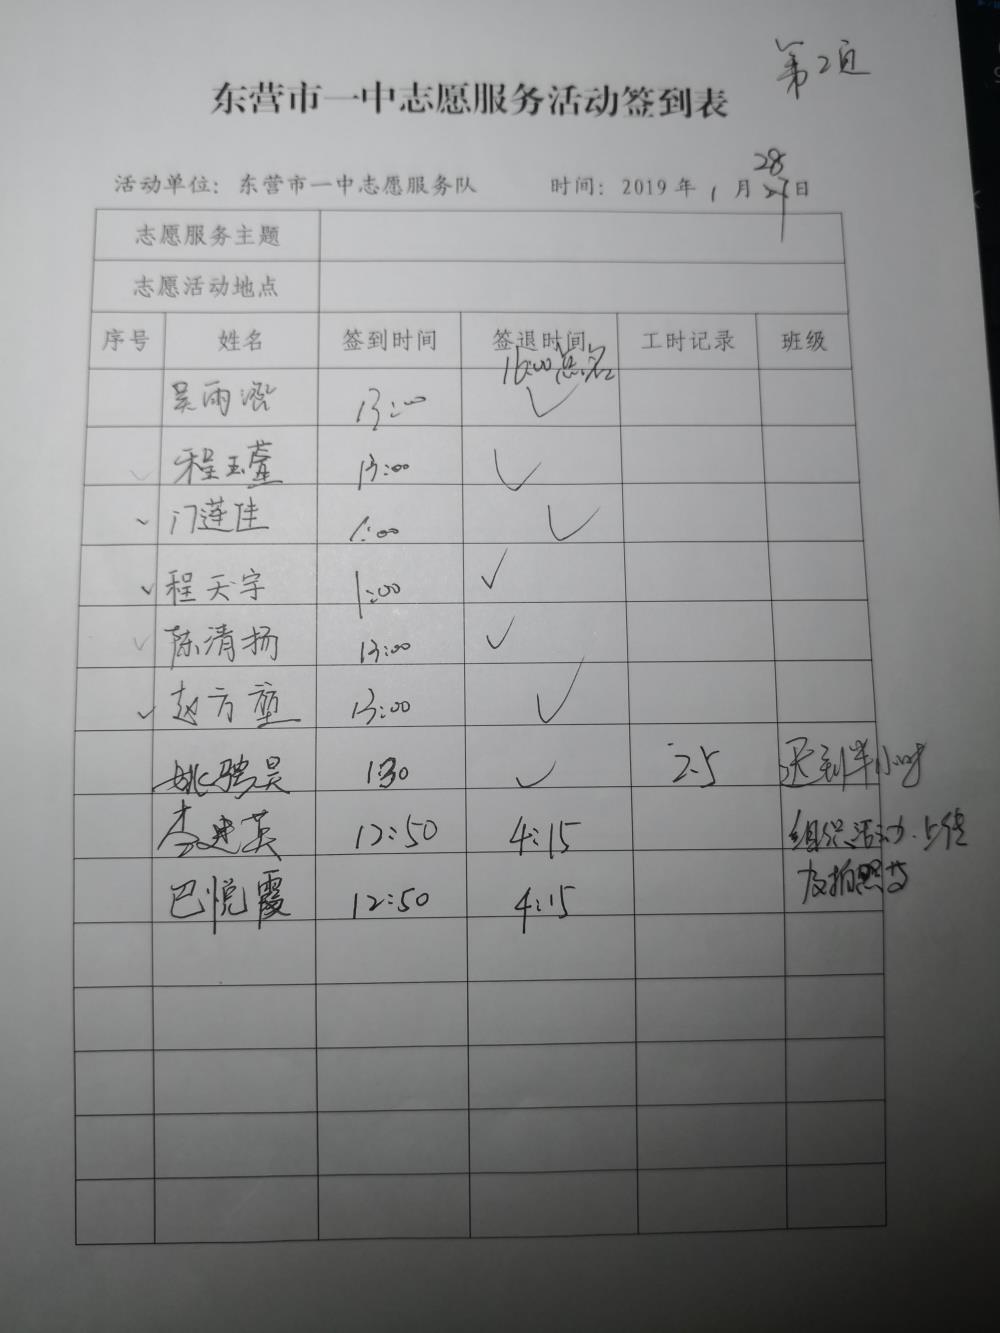 第2页
东营市一中志愿服务活动签到表
活动单位：东营市一中志愿服务队 时间：2019年1月28日
志愿服务主题
志愿活动地点
序号 姓名 签到时间 签退时间 工时记录 班级
16:00点名
吴雨 13:00 ✓
✓ 程玉萱 13:00 ✓
✓ 门莲佳 1:00 ✓
✓ 程天宇 1:00 ✓
✓ 陈清扬 13:00 ✓
✓ 赵方堃 13:00 ✓
姚骋昊 130 ✓ 2.5 迟到半小时
李建英 12:50 4:15 组织活动.上传
及拍照等
巴悦霞 12:50 4:15